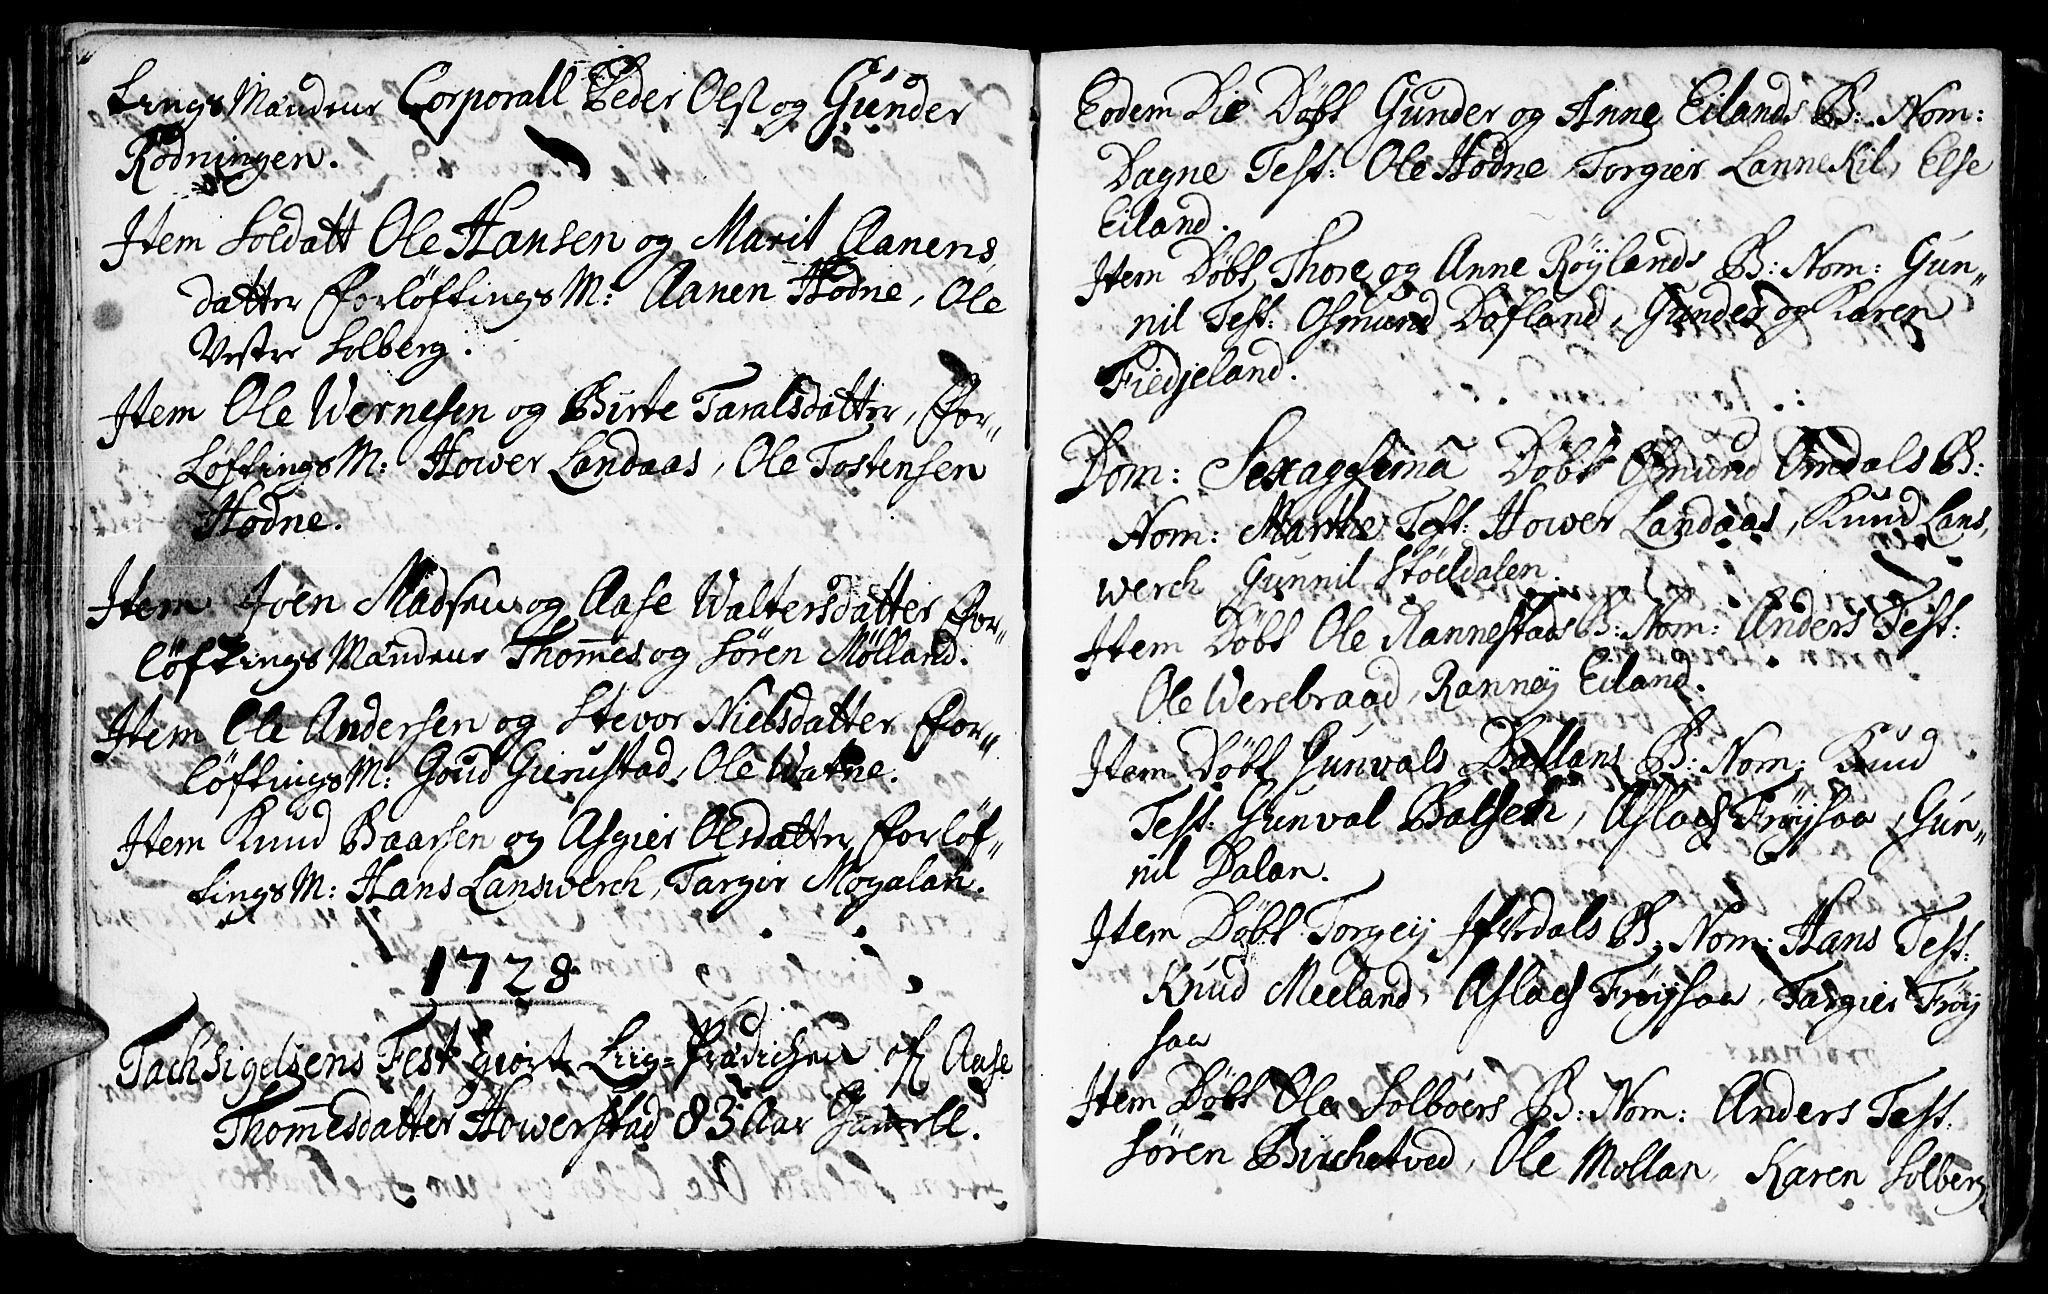 tings Mændene Corporall Peder Ols: og Gunder
Rødningen.
Item Soldatt Ole Hansen og Marit Aanens
datter Forløftings M: Aanen Hodne, Ole
Vestre Solberg.
Item Ole Wernesen og Birte Taralsdatter, For-
Løftings M: Hower Landaas, Ole Tostensen
Hodne.
Item Joen Madsen og Aase Waltersdatter For-
løftings Mændene Thom̅es og Sören Mølland.
Item Ole Andersen og Stevor Nielsdatter For-
løftings M: Goud Gierustad, Ole Watne.
Item Knud Baarsen og Asgier Olsdatter Forløf-
tings M: Hans Lanswerch, Targir Mogalan.
1728
Tachsigelsens Fest giort Liig-Prædichen af Aase
Thom̅esdatter Howerstad 83 Aar Gam̅ell.
Eodem Die Döbt Gunder og Anne Eilands B: Nom:
Dagne Test: Ole Hodne, Torgier Lannekil, Else
Eiland.
Item Döbt Thore og Anne Röylands B: Nom: Gun-
nil Test: Osmund Dofland, Gunder og Karen
Fiedjeland.
Dom: Sexagesima Döbt Osmund Omdals B:
Nom: Marthe Test: Hower Landaas, Knud Lans,
werch Gunnil Stöeldalen.
Item Döbt Ole Rannestads B: Nom: Anders Test:
Ole Werebraad, Rannej Eiland.
Item Döbt Gunvals Dallans B: Nom: Knud
Test: Gunval Balsen, Aslach Fröysaa, Gun-
nil Dalan.
Item Döbt Torgej Ifverdals B: Nom: Hans Test:
Knud Meeland, Aslach Fröysaa, Targier Fröy
saa
Item Döbt Ole Solbers B: Nom: Anders Test:
Sören Birchetved, Ole Mollan, Karen Solberg